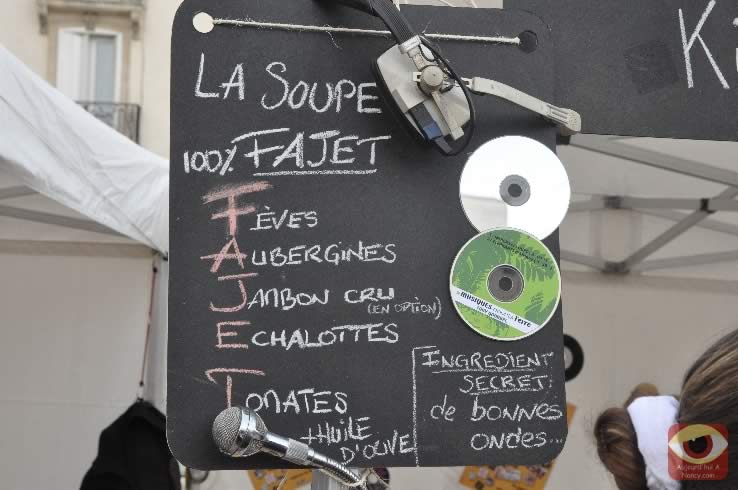 LA SOUPE
100% FAJET
FÈVES
AUBERGINES
JAMBON CRU
(EN OPTION)
ECHALOTTES
TOMATES
+ HUILE
D'OLIVE
INGREDIENT
SECRET:
de bonnes
ondes...
Ki
MUSIQUES Terre
Aujourd'hui A
Nancy.com